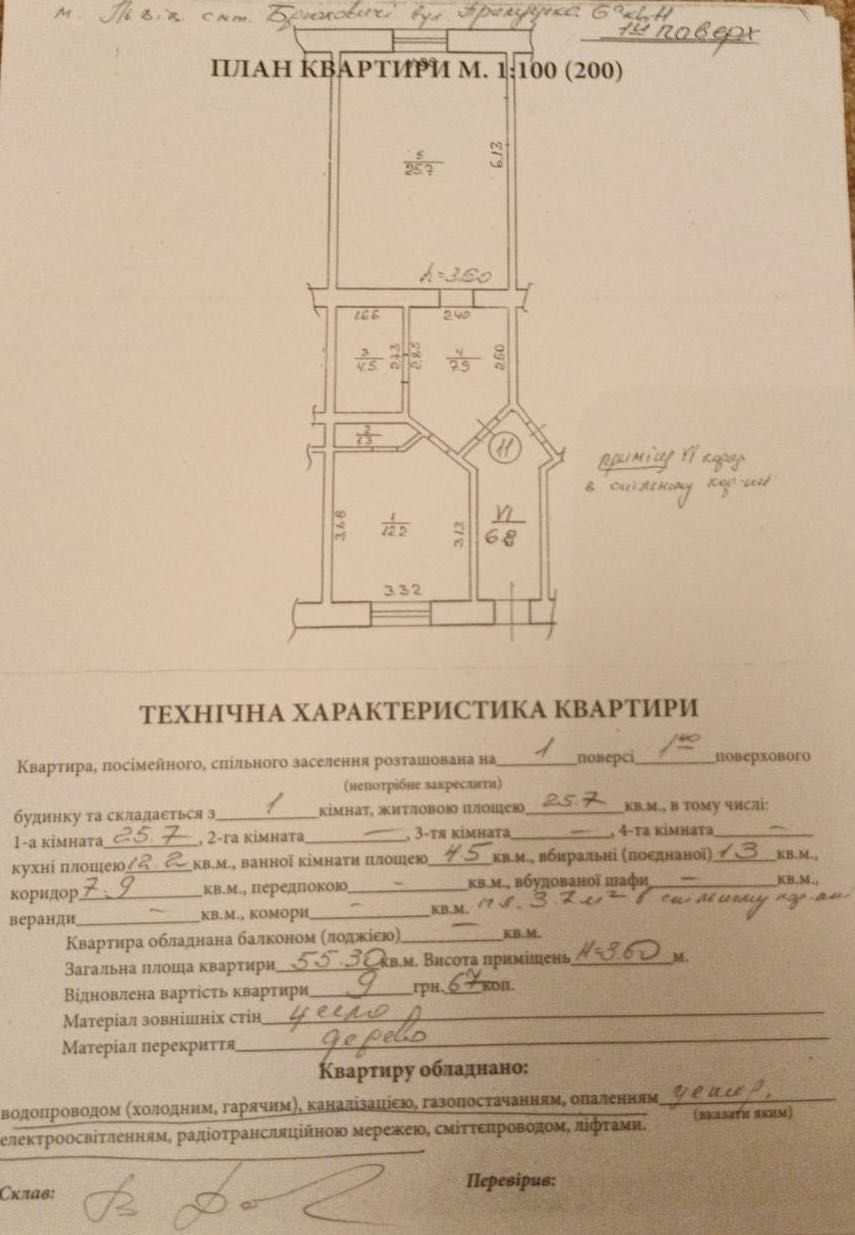 м. Львів смт. Брюховичі вул 6а кв.11
1й поверх
ПЛАН КВАРТИРИ М. 1:100 (200)
5
25.7
6.13
h=3.60
1.66
2.40
3
4.5
2.73
2.85
4
7.9
2.60
2
1.3
11
приміщ VI корид
в спільному кор-ині
1
12.2
3.68
3.13
VI
6.8
3.32
ТЕХНІЧНА ХАРАКТЕРИСТИКА КВАРТИРИ
Квартира, посімейного, спільного заселення розташована на 1 поверсі 1но поверхового
(непотрібне закреслити)
будинку та складається з 1 кімнат, житловою площею 25.7 кв.м., в тому числі:
1-а кімната 25.7, 2-га кімната —, 3-тя кімната —, 4-та кімната —
кухні площею 12.2 кв.м., ванної кімнати площею 4.5 кв.м., вбиральні (поєднаної) 1.3 кв.м.,
коридор 7.9 кв.м., передпокою - кв.м., вбудованої шафи — кв.м.,
веранди — кв.м., комори — кв.м. пл. 3.7 м² в спільному
Квартира обладнана балконом (лоджією) — кв.м.
Загальна площа квартири 55.30 кв.м. Висота приміщень H=3.60 м.
Відновлена вартість квартири 9 грн. 67 коп.
Матеріал зовнішніх стін цегла
Матеріал перекриття дерево
Квартиру обладнано:
водопроводом (холодним, гарячим), каналізацією, газопостачанням, опаленням центр.
(вказати яким)
електроосвітленням, радіотрансляційною мережею, сміттєпроводом, ліфтами.
Склав:
Перевірив: